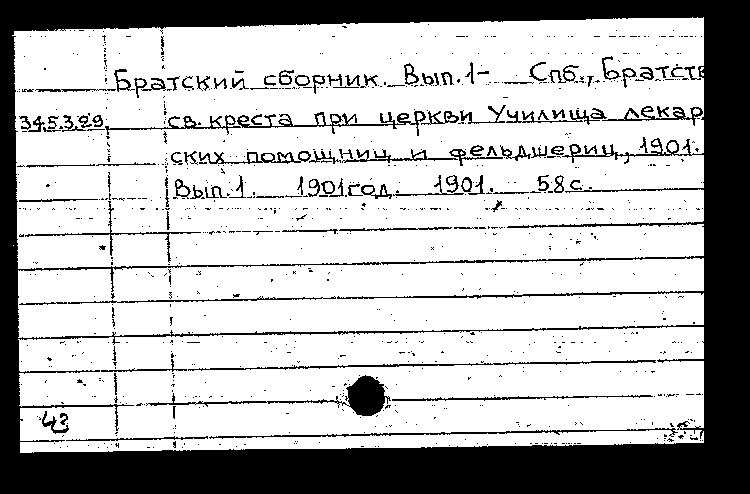 Братский сборник. Вып. 1- Спб., Братств
34.5.3.29. св. креста при церкви Училища лекар
ских помощниц и фельдшериц, 1901.
Вып. 1. 1901год. 1901. 58с.
43